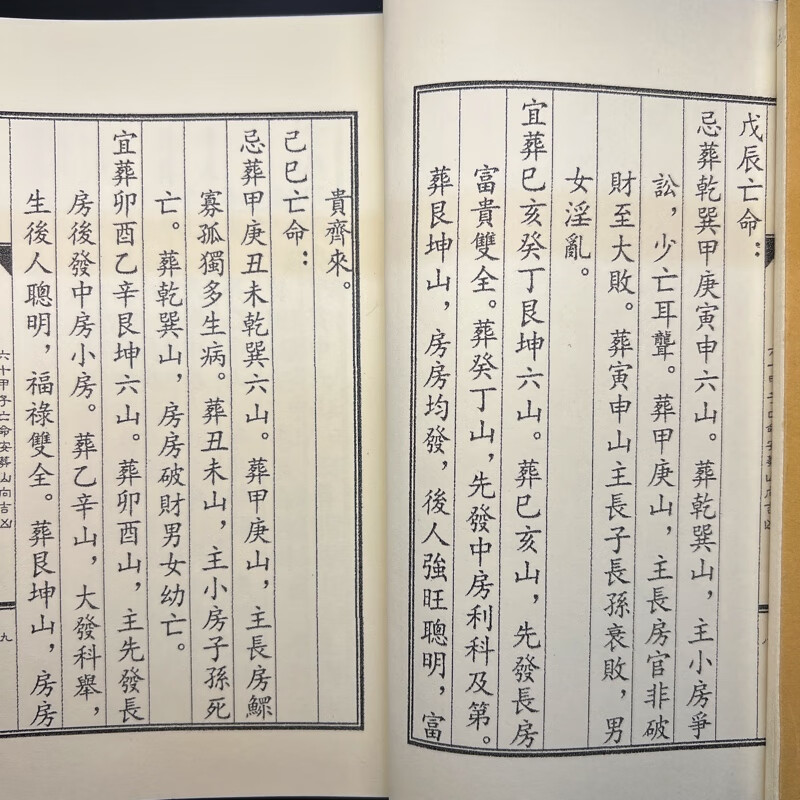 戊辰亡命：
忌葬乾巽甲庚寅申六山。葬乾巽山，主小房爭
訟，少亡耳聾。葬甲庚山，主長房官非破
財至大敗。葬寅申山主長子長孫衰敗，男
女淫亂。
宜葬巳亥癸丁艮坤六山。葬巳亥山，先發長房
富貴雙全。葬癸丁山，先發中房利科及第。
葬艮坤山，房房均發，後人強旺聰明，富
貴齊來。
己巳亡命：
忌葬甲庚丑未乾巽六山。葬甲庚山，主長房鰥
寡孤獨多生病。葬丑未山，主小房子孫死
亡。葬乾巽山，房房破財男女幼亡。
宜葬卯酉乙辛艮坤六山。葬卯酉山，主先發長
房後發中房小房。葬乙辛山，大發科舉，
生後人聰明，福祿雙全。葬艮坤山，房房
六十甲子亡命安葬山向吉凶
九